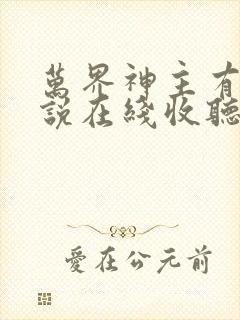 萬界神主有
說在綫收聽
愛在公元前